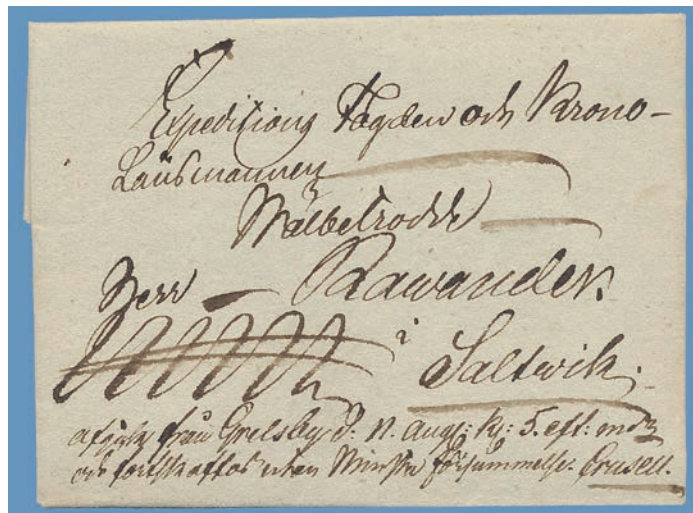 Expeditions Fogden och Krono-
Länsmannen
Wälbetrodde
Herr Rawander.
i Saltwik.
afgår från Grelsby d. 11. Aug: Kl: 5. eft: mid
och fortskaffas utan Minsta försummelse. Crusell.